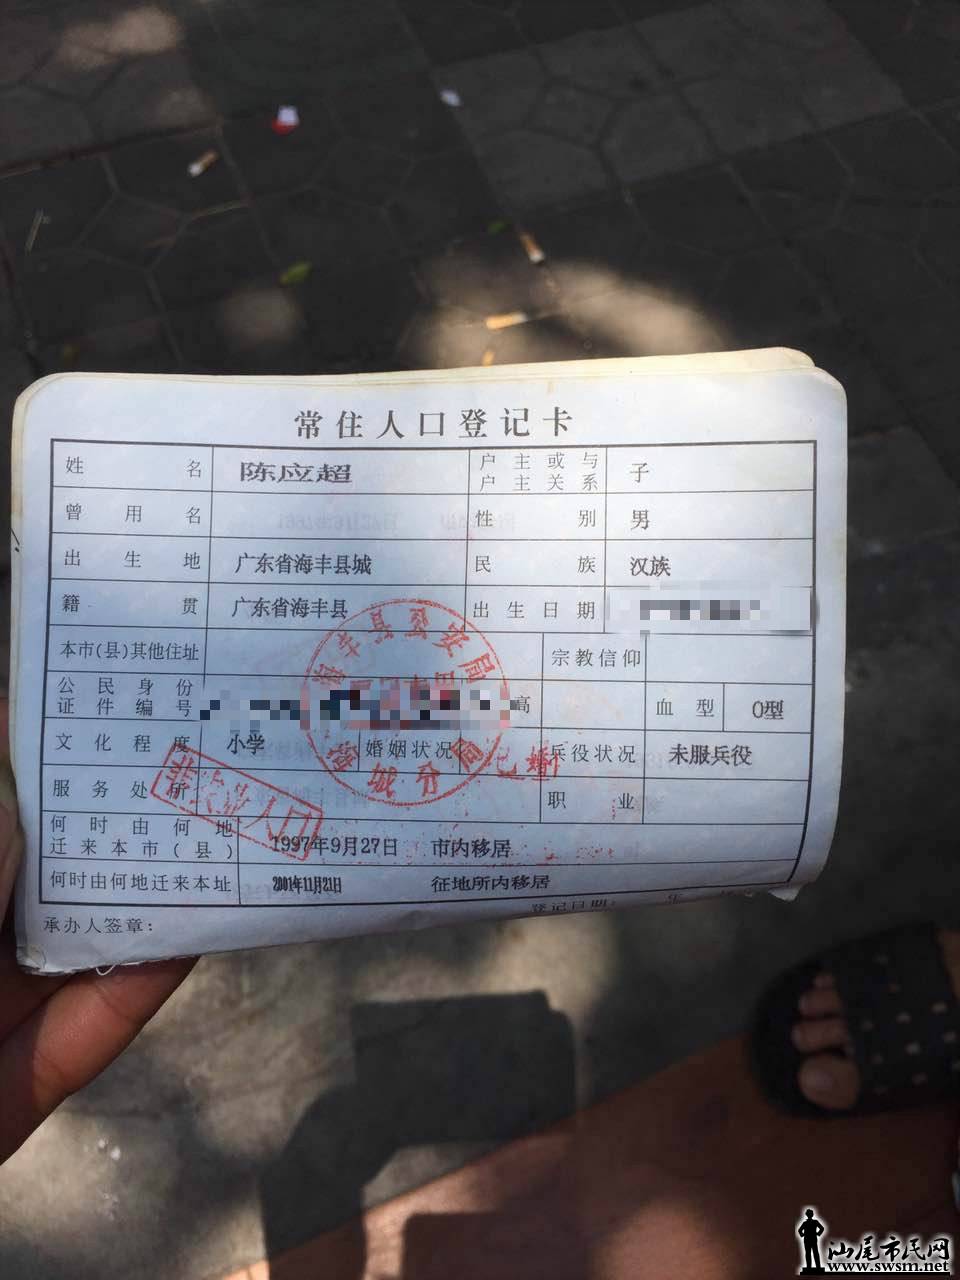 常住人口登记卡
姓名 陈应超 户主或与户主关系 子
曾用名 性别 男
出生地 广东省海丰县城 民族 汉族
籍贯 广东省海丰县 出生日期
本市(县)其他住址 宗教信仰
公民身份证件编号 高 血型 O型
文化程度 小学 婚姻状况 已婚 兵役状况 未服兵役
服务处所 职业
何时由何地迁来本市(县) 1997年9月27日 市内移居
何时由何地迁来本址 2001年11月21日 征地所内移居
承办人签章: 登记日期: 年
海丰县公安局
海城分局
非农业人口
汕尾市民网
www.swsm.net